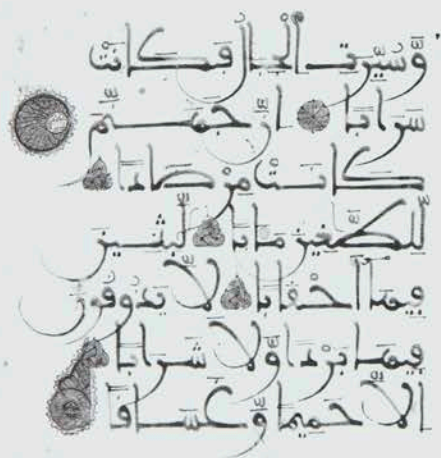 وَّسُيِّرت الْجبالُ فكانتْ
سَرَابا ۝ انَّ جهنَّمَ
كانتْ مرْصَادا ۝
لِّلطَّغين مابا ۝ لَّبثين
فيهآ احْقابا ۝ لَّا يذوقُون
فيها برْدا وَّلا شرَابا ۝
الَّا حَميما وَّغَسَّاقا